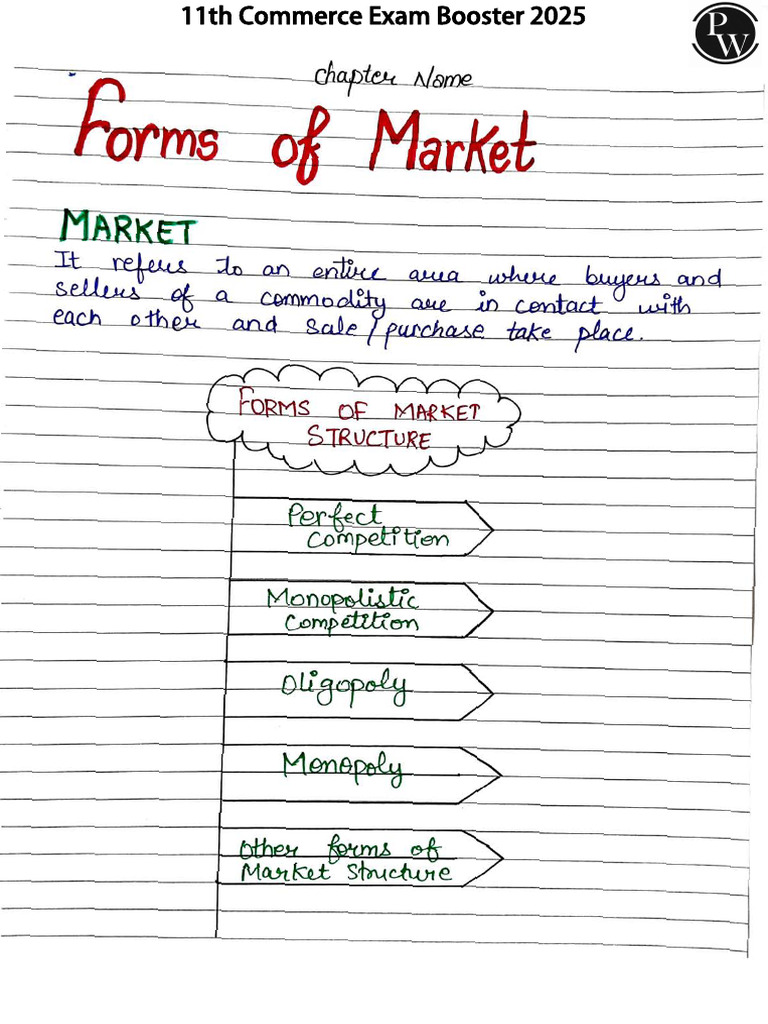 11th Commerce Exam Booster 2025
PW
Chapter Name
Forms of Market
MARKET
It refers to an entire area where buyers and
sellers of a commodity are in contact with
each other and sale/purchase take place.
FORMS OF MARKET
STRUCTURE
Perfect
Competition
Monopolistic
Competition
Oligopoly
Monopoly
Other forms of
Market Structure